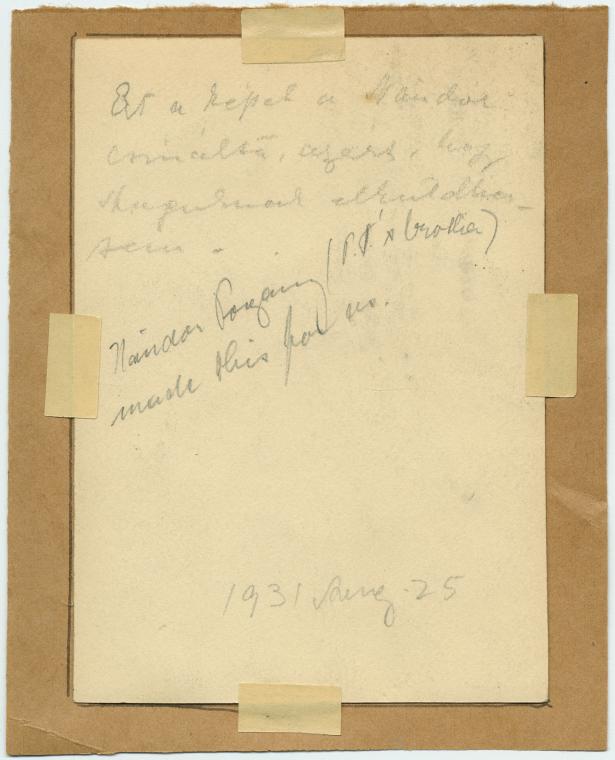 Ezt a képet a Nándor
csinálta, azért, hogy
elküldhes-
sem.
Nándor Pogany (P.P.'s brother)
made this for us.
1931 Aug. 25